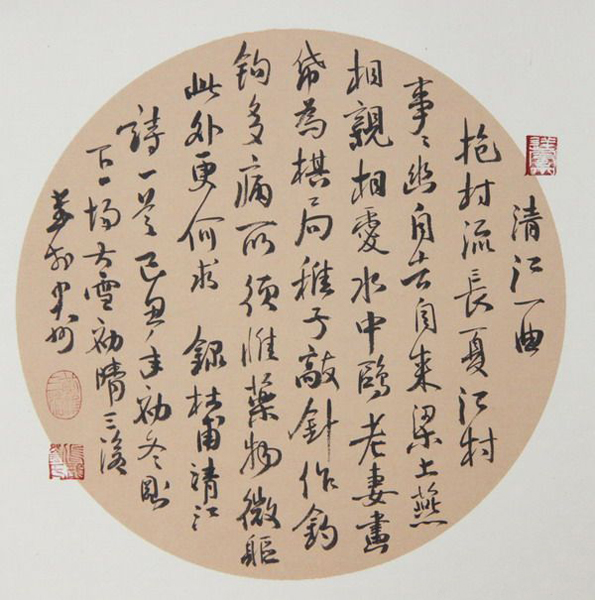 清江一曲
抱村流長夏江村
事〻幽自去自来梁上燕
相親相愛水中鷗老妻畫
帋為棋局稚子敲針作釣
鉤多病所須惟藥物微軀
此外更何求 錄杜甫清江
詩一首己丑年初冬剛
下一場大雪初晴